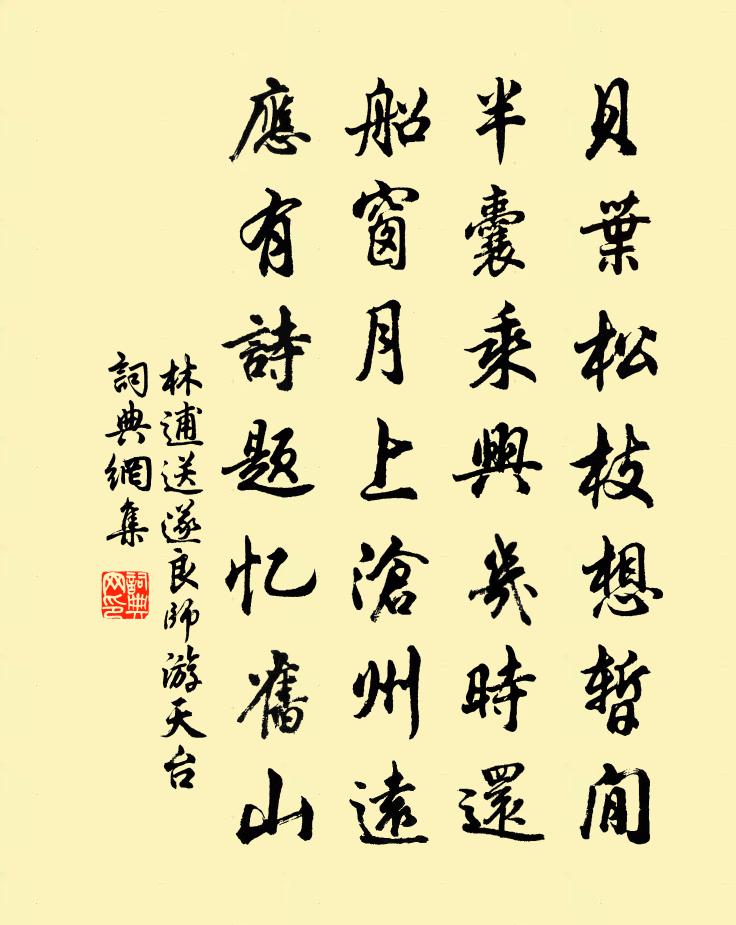 貝葉松枝想暫閒
半囊乘興幾時還
船窗月上滄州遠
應有詩題忆舊山
林逋送遂良師游天台
詞典網集
詞典网印